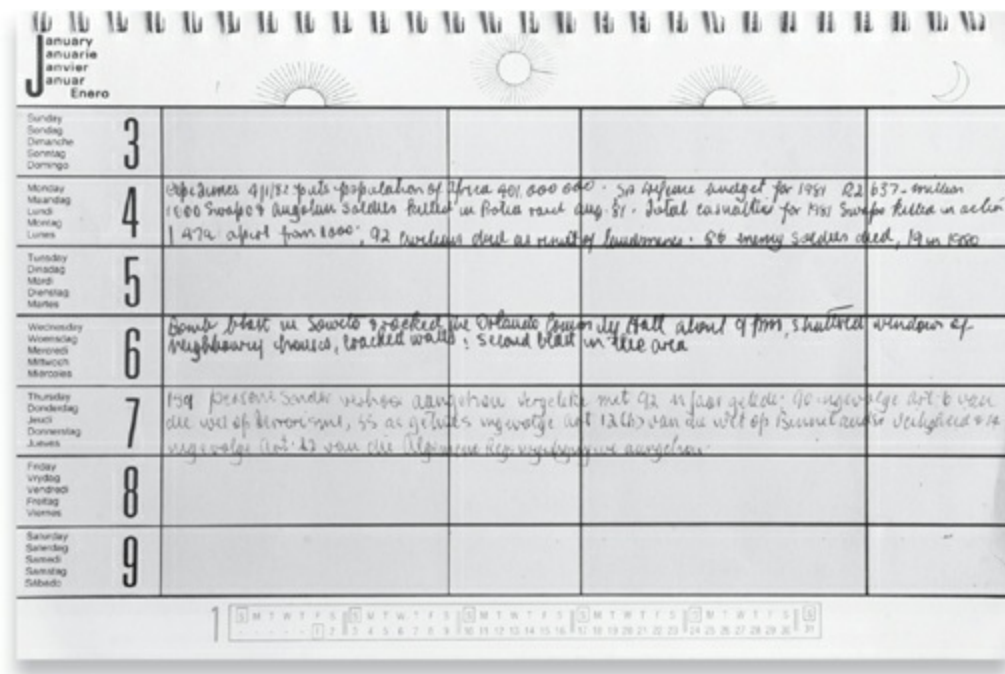 January
Januarie
Janvier
Januar
Enero
Sunday
Sondag
Dimanche
Sonntag
Domingo
3
Monday
Maandag
Lundi
Montag
Lunes
4
Cape Times 4/1/82 puts population of Africa 401 000 000. SA defence budget for 1981 R2 637-million
1000 Swapo & angolan soldiers killed in Protea raid aug. 81. Total casualties for 1981 Swapo killed in action
1 474 apart from 1000; 92 civilians died as result of landmines. 56 enemy soldiers died, 19 in 1980
Tuesday
Dinsdag
Mardi
Dienstag
Martes
5
Wednesday
Woensdag
Mercredi
Mittwoch
Miercoles
6
Bomb blast in Soweto rocked the Orlando Hall about 9 pm, shattered windows of
neighbouring houses, cracked walls; second blast in the area
Thursday
Donderdag
Jeudi
Donnerstag
Jueves
7
persone sonder verhoor aangehou vergeleke met 92 n jaar gelede. 90 ingevolge Art 6 van
die wet op terrorisme, 55 as getuies ingevolge Art 12(b) van die wet op Binnelandse Veiligheid
ingevolge Art. 22 van die Algemene aangehou.
Friday
Vrydag
Vendredi
Freitag
Viernes
8
Saturday
Saterdag
Samedi
Samstag
Sábado
9
1 S M T W T F S S M T W T F S S M T W T F S S M T W T F S S M T W T F S S
1 2 3 4 5 6 7 8 9 10 11 12 13 14 15 16 17 18 19 20 21 22 23 24 25 26 27 28 29 30 31